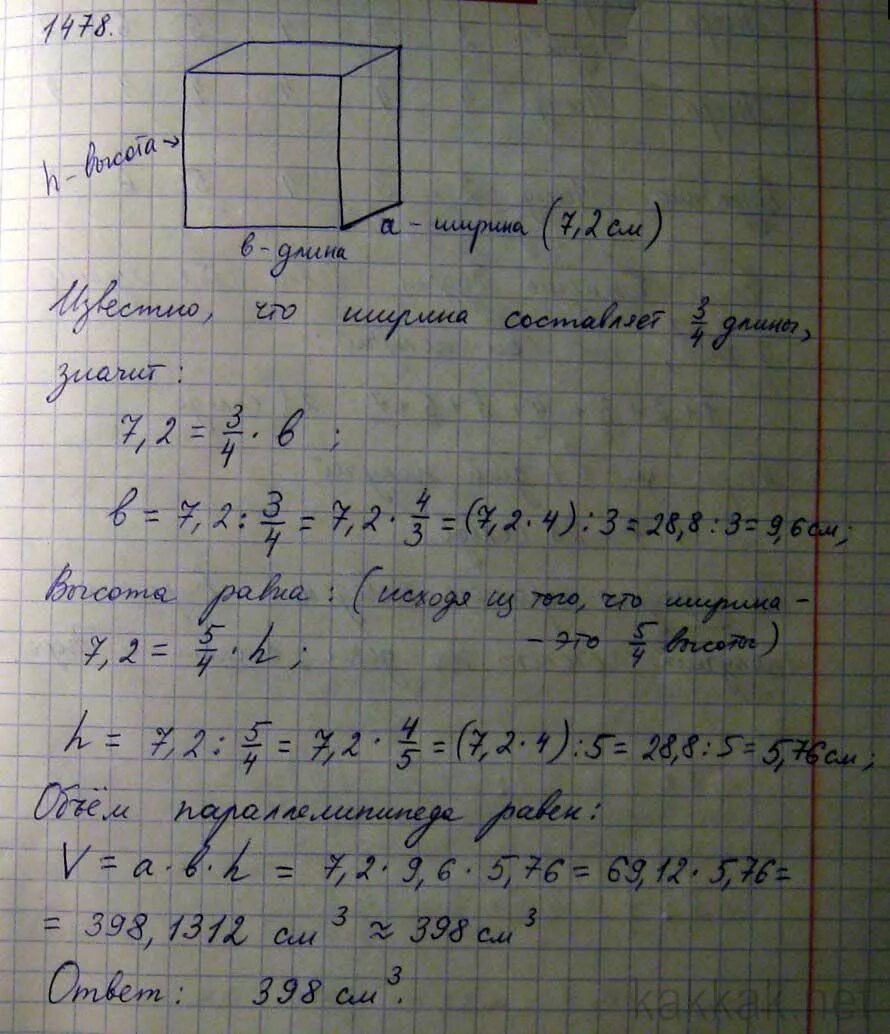 1478.
h - высота →
a - ширина (7,2 см)
в - длина
Известно, что ширина составляет 3/4 длины,
значит:
7,2 = 3/4 · в ;
в = 7,2 : 3/4 = 7,2 · 4/3 = (7,2 · 4) : 3 = 28,8 : 3 = 9,6 см;
Высота равна : (исходя из того, что ширина -
7,2 = 5/4 · h ; - это 5/4 высоты)
h = 7,2 : 5/4 = 7,2 · 4/5 = (7,2 · 4) : 5 = 28,8 : 5 = 5,76 см;
Объём параллелипипеда равен:
V = a · в · h = 7,2 · 9,6 · 5,76 = 69,12 · 5,76 =
= 398,1312 см³ ≈ 398 см³
Ответ: 398 см³.
kakkak.net